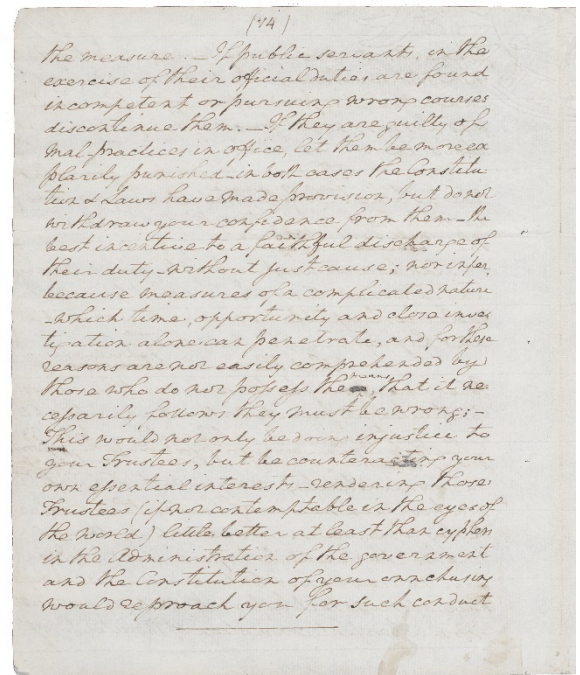 (74)
the measure. - If public servants, in the
exercise of their official duties are found
incompetent or pursuing wrong courses
discontinue them. - If they are guilty of
mal-practices in office, let them be more ex
plarily punished - in both cases the Constitu
tion & Laws have made provision, but do not
withdraw your confidence from them - the
best incentive to a faithful discharge of
their duty - without just cause; nor infer,
because measures of a complicated nature
- which time, opportunity and close inves
tigation alone can penetrate, and for these
reasons are not easily comprehended by
those who do not possess the means, that it ne
cessarily follows they must be wrong; -
This would not only be doing injustice to
your Trustees, but be counteracting your
own essential interests - rendering those
Trustees (if not contemptable in the eyes of
the world) little better at least than cyphers
in the Administration of the government
and the Constitution of your own chusing
would reproach you for such conduct